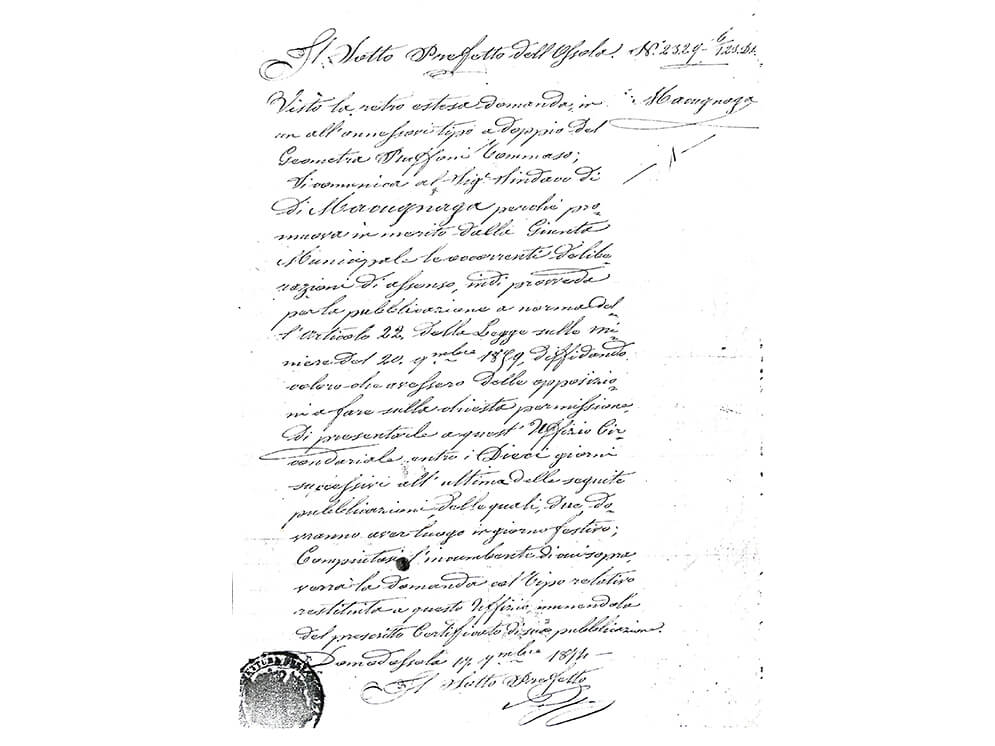 Il Sotto Prefetto dell'Ossola. N.° 2329
Macugnaga
Visto la retro estesa domanda, in
un all'annessovi tipo a doppio del
Geometra Tommaso;
Si comunica al Sig.r Sindaco di
di Macugnaga perchè pro=
muova in merito dalla Giunta
Municipale le occorrenti delibe=
razioni di assenso, indi provveda
per la pubblicazione a norma del=
l'articolo 22. della Legge sulle mi=
niere del 20. 9.mbre 1859, diffidando
coloro che avessero delle opposizio=
ni a fare sulla chiesta permissione
di presentarle a quest'Uffizio Cir=
condariale entro i Dieci giorni
successivi all'ultima delle seguite
pubblicazioni, delle quali, due, do=
vranno aver luogo in giorno festivo;
Compiutosi l'incumbente di cui sopra,
verrà la domanda col tipo relativo
restituita a questo Uffizio, munendola
del prescritto Certificato di sua pubblicazione.
Domodossola 17. 9.mbre
Il Sotto Prefetto